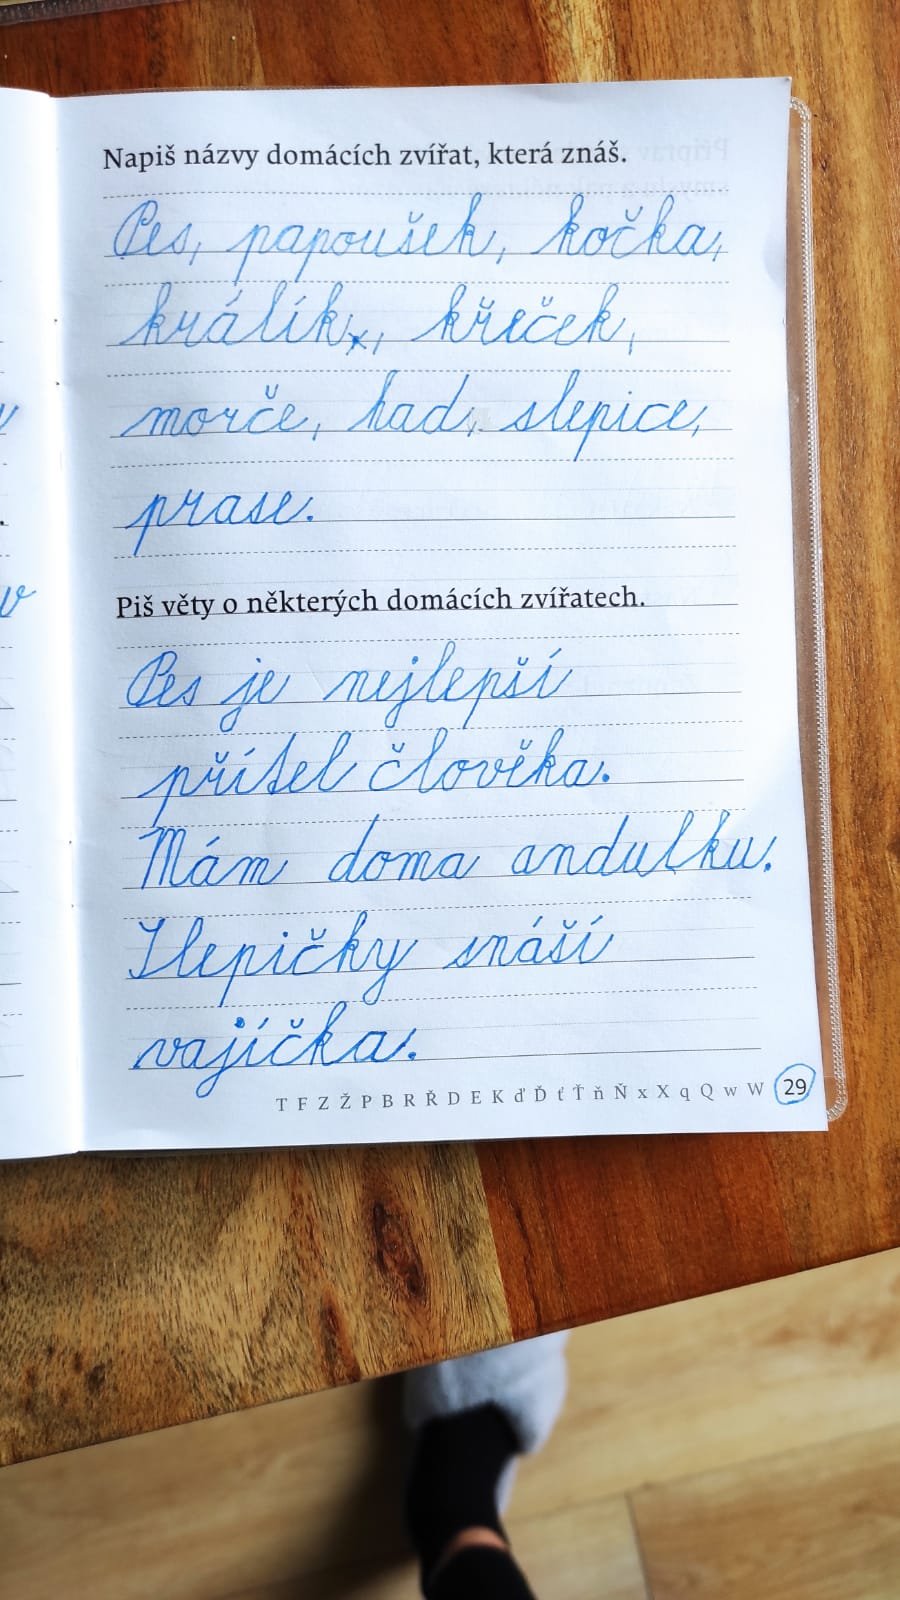 Napiš názvy domácích zvířat, která znáš.
Pes, papoušek, kočka,
králík, křeček,
morče, had, slepice,
prase.
Piš věty o některých domácích zvířatech.
Pes je nejlepší
přítel člověka.
Mám doma andulku.
Slepičky snáší
vajíčka.
T F Z Ž P B R Ř D E K ď Ď ť Ť ň Ň x X q Q w W 29